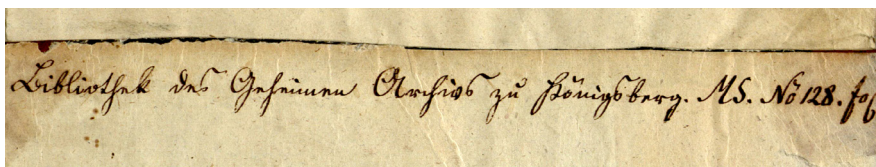 Bibliothek des Geheimen Archivs zu Königsberg. MS. No 128. fol